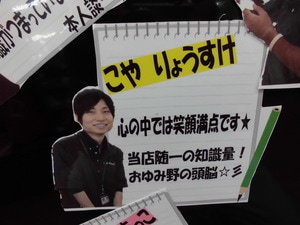 本人談
こや りょうすけ
心の中では笑顔満点です★
当店随一の知識量！
おゆみ野の頭脳☆彡